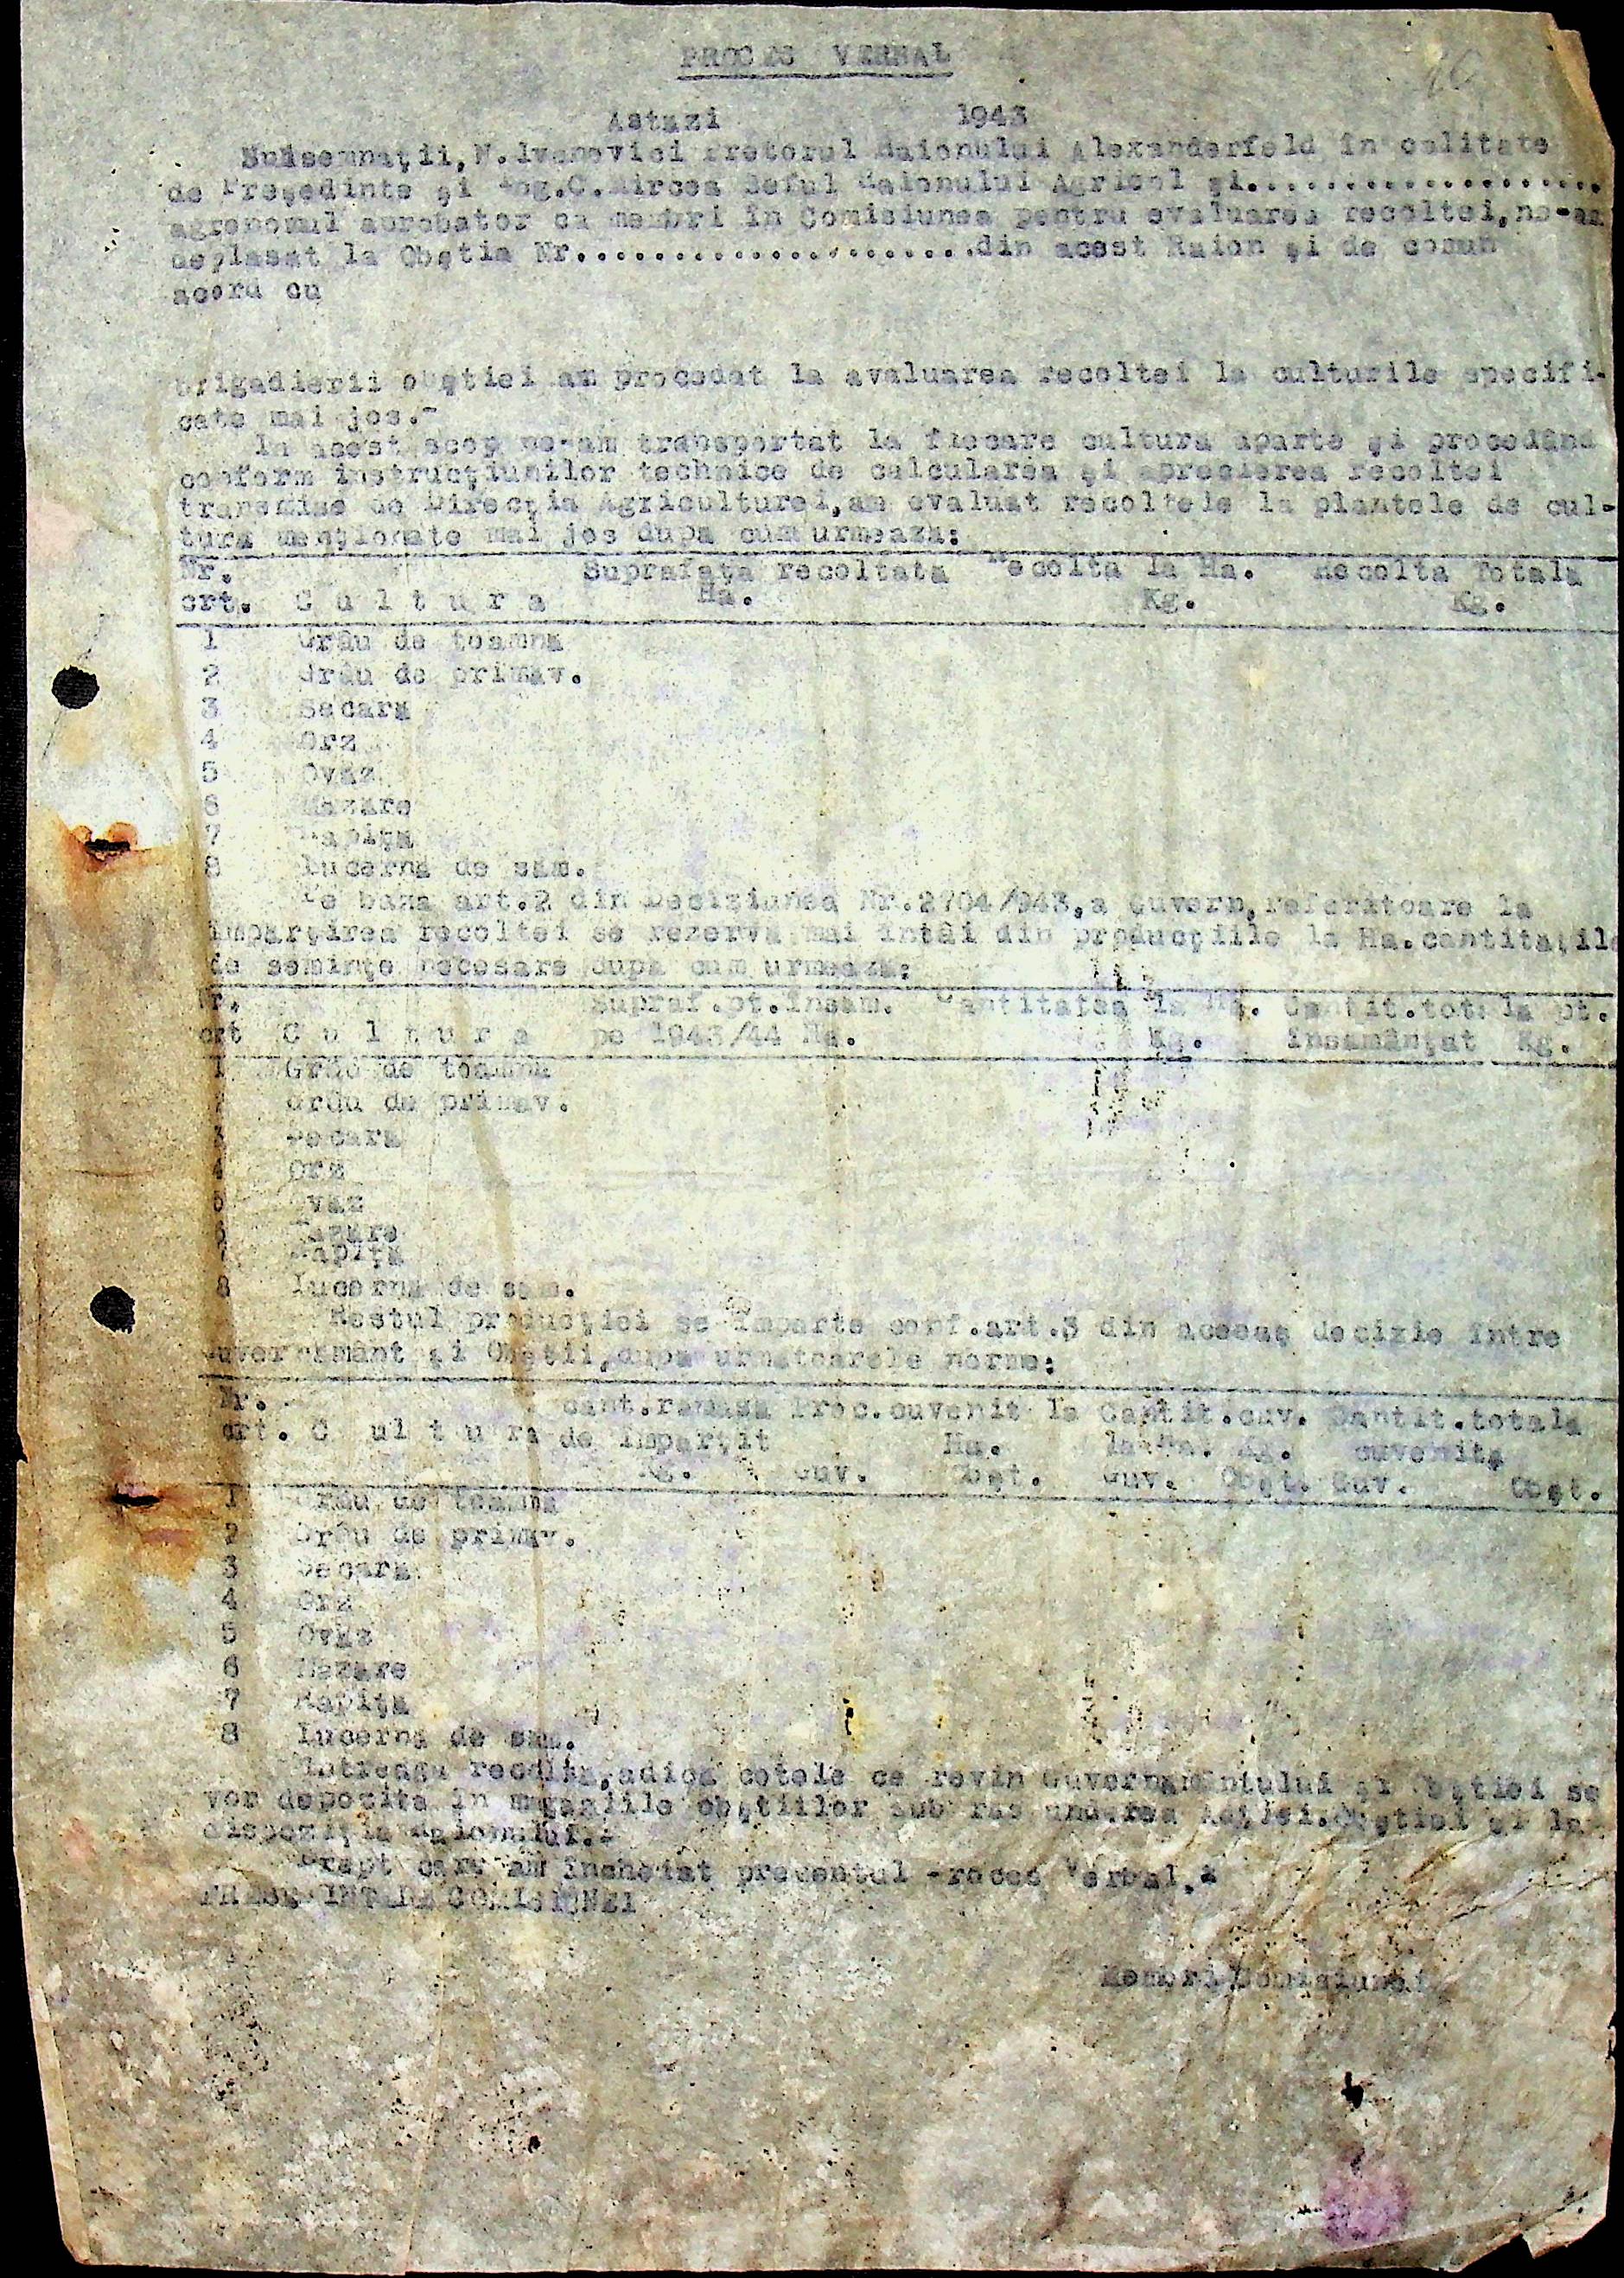 PROCES VERBAL
Astazi 1943
Subsemnaţii, N. Ivanovici Pretorul Raionului Alexanderfeld în calitate
de Preşedinte şi Ing.C.Mircea Seful Raionului Agricol şi......................
agronomul aprobator ca membri în Comisiunea pentru evaluarea recoltei, ne-am
deplasat la Obştia Nr.........................din acest Raion şi de comun
acord cu
brigadierii obştiei am procedat la avaluarea recoltei la culturile specifi-
cate mai jos.-
In acest scop ne-am transportat la fiecare cultura aparte şi procedând
conform instrucţiunilor technice de calcularea şi aprecierea recoltei
transmise de Direcţia Agriculturei, am evaluat recoltele la plantele de cul-
tura menţionate mai jos dupa cum urmeaza:
Nr. Suprafaţa recoltata Recolta la Ha. Recolta Totala
crt. C u l t u r a Ha. Kg. Kg.
1 Grâu de toamna
2 Grâu de primav.
3 Secara
4 Orz
5 Ovaz
6 Mazare
7 Rapiţa
8 Lucerna de sam.
Pe baza art.2 din Deciziunea Nr.2704/943, a Guvern, referitoare la
împarţirea recoltei se rezerva mai întâi din producţiile la Ha.cantitaţile
de seminţe necesare dupa cum urmeaza:
Nr. Supraf.pt.însam. Cantitatea la Ha. Cantit.totala pt.
crt C u l t u r a pe 1943/44 Ha. Kg. însamânţat Kg.
1 Grâu de toamna
2 Grâu de primav.
3 Secara
4 Orz
5 Ovaz
6 Mazare
7 Rapiţa
8 Lucerna de sam.
Restul producţiei se împarte conf.art.3 din aceeaş decizie între
Guvernamânt şi Obştii, dupa urmatoarele norme:
Nr. cant.ramasa Proc.cuvenit la Cantit.cuv. Cantit.totala
crt. C ul t u ra de împarţit Ha. la Ha. Kg. cuvenita
Kg. Guv. Obşt. Guv. Obşt. Guv. Obşt.
1 Grâu de toamna
2 Grâu de primav.
3 Secara
4 Orz
5 Ovaz
6 Mazare
7 Rapiţa
8 Lucerna de sam.
Intreaga recolta, adica cotele ce revin Guvernamântului şi Obştiei se
vor depozita în magaziile obştiilor sub raspunderea Obştiei şi la
dispoziţia Raionului.-
Drept care am încheiat prezentul Proces Verbal.-
PRESEDINTELE COMISIUNEI
Membri Comisiunei